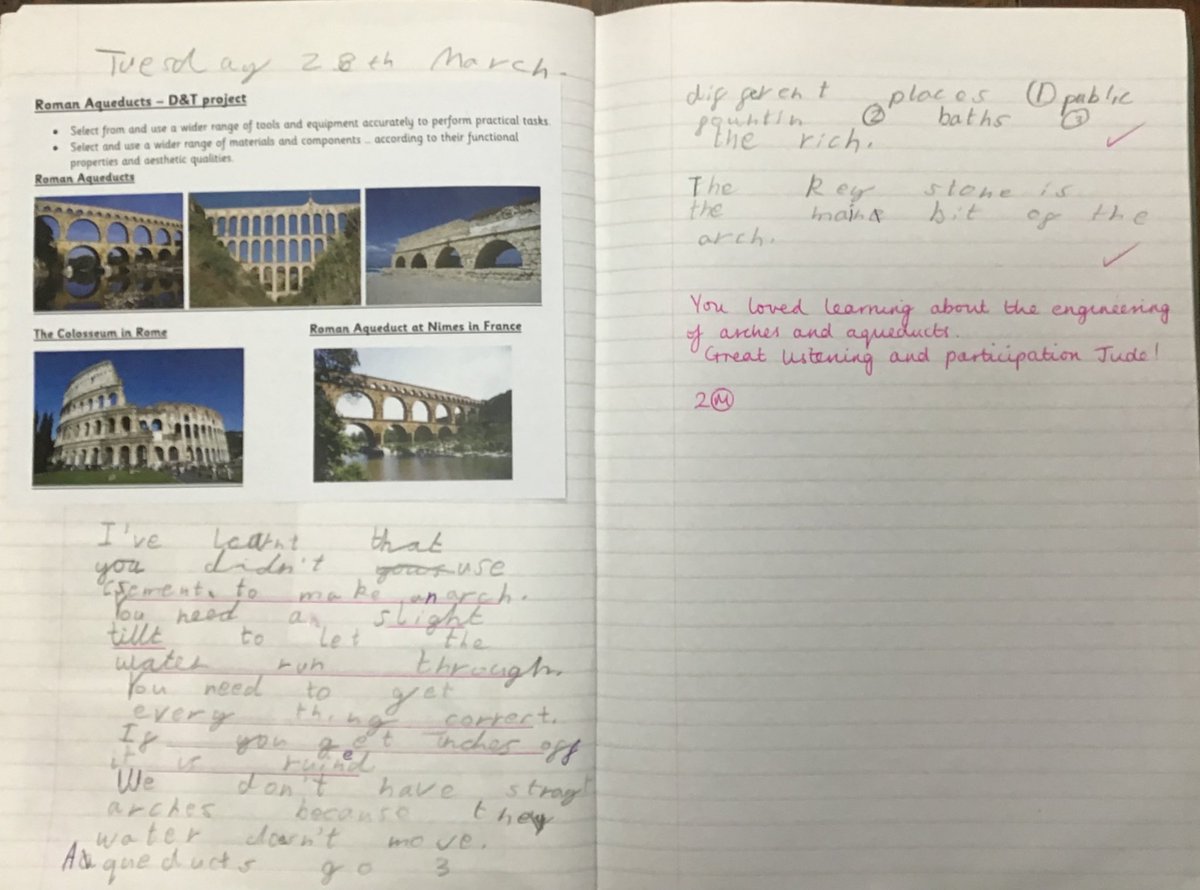 Tuesday 28th March.
Roman Aqueducts – D&T project
• Select from and use a wider range of tools and equipment accurately to perform practical tasks.
• Select and use a wider range of materials and components … according to their functional
properties and aesthetic qualities.
Roman Aqueducts
The Colosseum in Rome
Roman Aqueduct at Nimes in France
I've learnt that
you didn't use
csement. to make an arch.
You need a slight
tillt to let the
water run through.
You need to get
every thing correct.
If you get inches off
it is ruined
We don't have stragt
arches because they
water doesn't move.
Aqueducts go 3
different places ① public
fountin ② baths ③
the rich.
The Key stone is
the main bit of the
arch.
You loved learning about the engineering
of arches and aqueducts.
Great listening and participation Jude!
2 Ⓜ